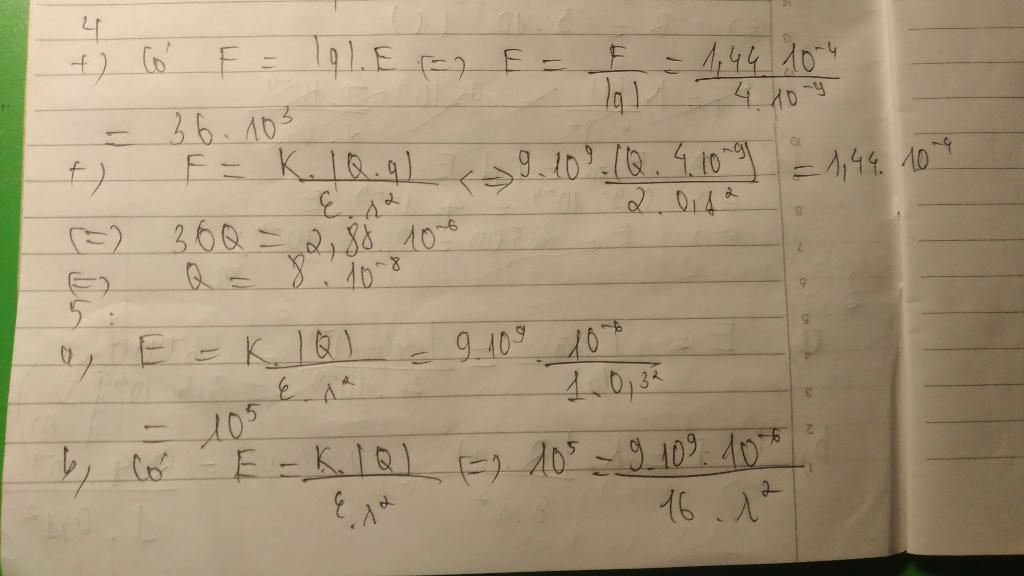 4
+) Có F = |q|.E (=) E = F/|q| = 1,44 10⁻⁴/4.10⁻⁹
= 36.10³
+) F = K.|Q.q|/ε.r² <=> 9.10⁹.|Q.4.10⁻⁹|/2.0,1² = 1,44.10⁻⁴
(=) 36Q = 2,88.10⁻⁶
(=) Q = 8.10⁻⁸
5:
a, E = K.|Q|/ε.r² = 9.10⁹.10⁻⁶/1.0,3²
= 10⁵
b, Có E = K.|Q|/ε.r² (=) 10⁵ = 9.10⁹.10⁻⁶/16.r²